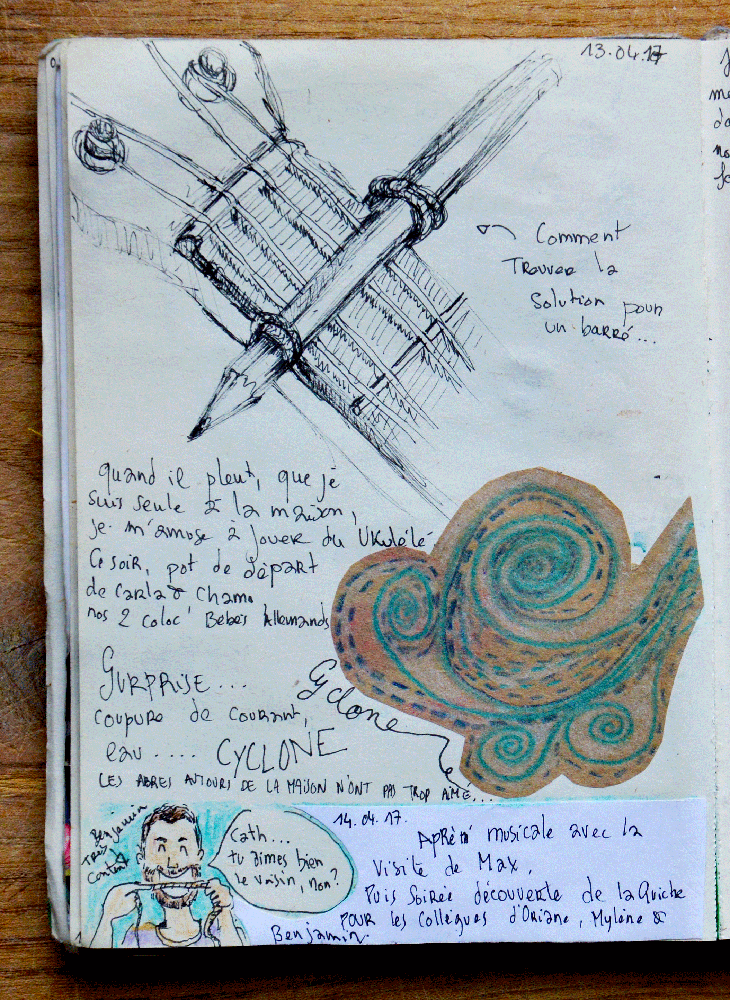 13.04.17
Comment
Trouver la
Solution pour
un barré...
quand il pleut, que je
suis seule à la maison,
je m'amuse à jouer du Ukulélé
Ce soir, pot de départ
de Carla & Cham.
nos 2 coloc' Bébés Allemands
SURPRISE...
coupure de courant,
eau .... CYCLONE
Cyclone
LES ABRES AUTOURS DE LA MAISON N'ONT PAS TROP AIMÉ...
Benjamin
TRÈS
Content
Cath...
tu aimes bien
le voisin, non?
14.04.17.
APRÈM' musicale avec la
Visite de Max.
Puis Soirée découverte de la Quiche
POUR les Collègues d'Oriane, Mylène &
Benjamin.